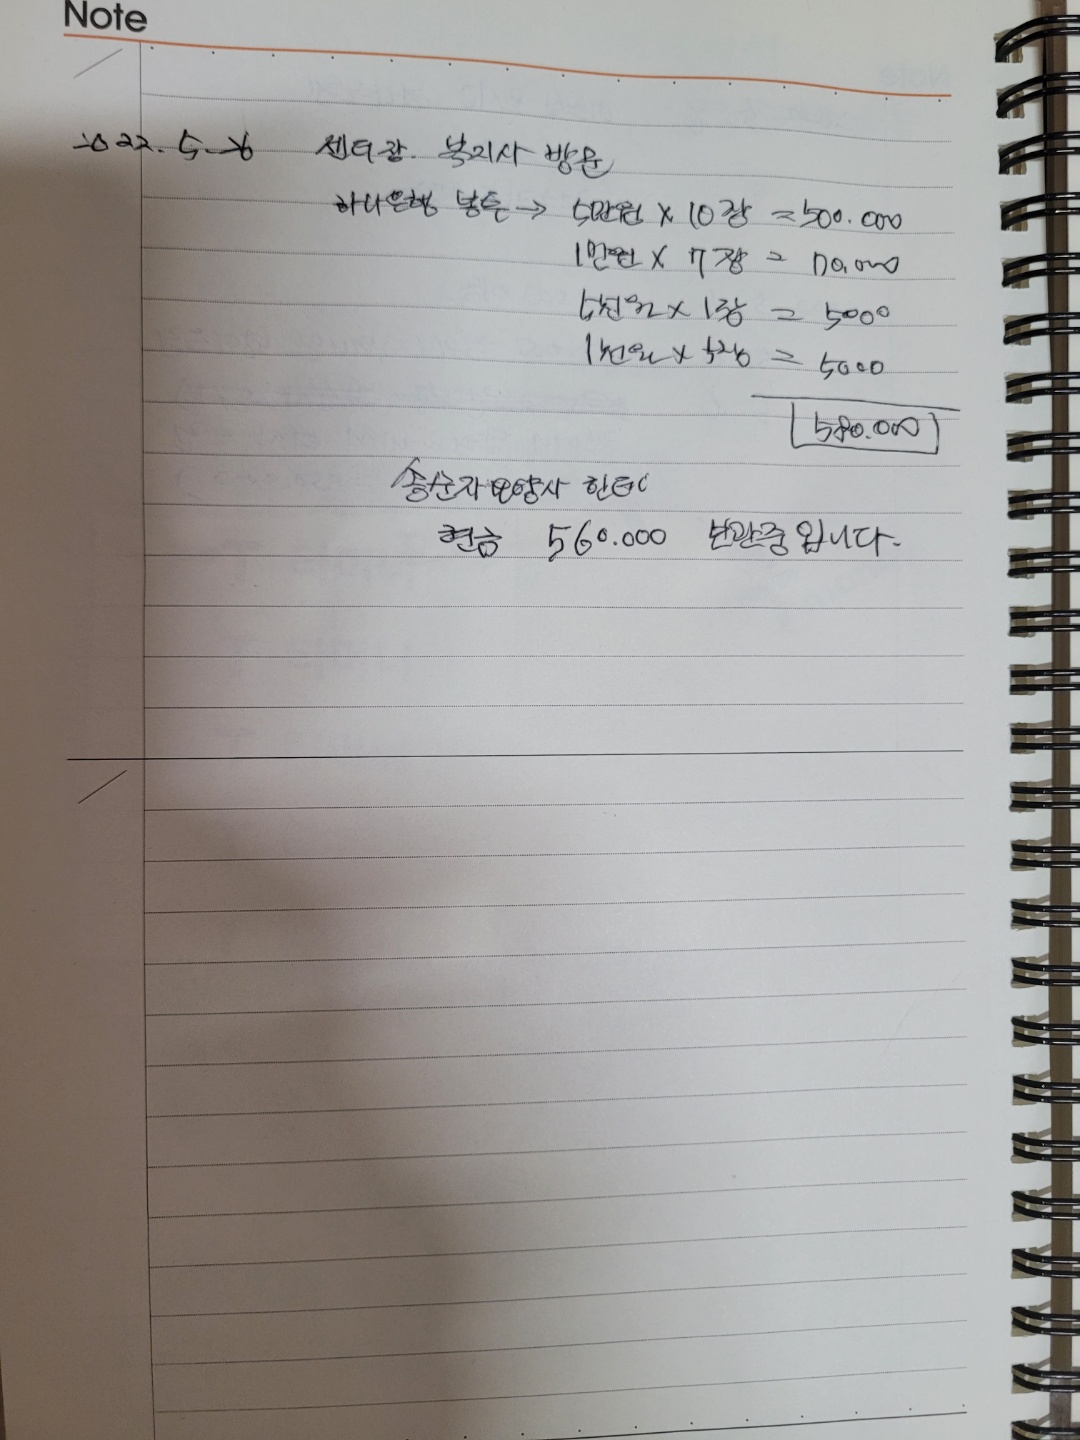 Note
2022. 5. 26 센터장. 복지사 방문
하나은행 봉투 → 5만원 x 10장 = 500.000
1만원 x 7장 = 70.000
5천원 x 1장 = 5000
1천원 x 5장 = 5000
580.000
송순자요양사 한테
현금 560.000 보관중입니다.